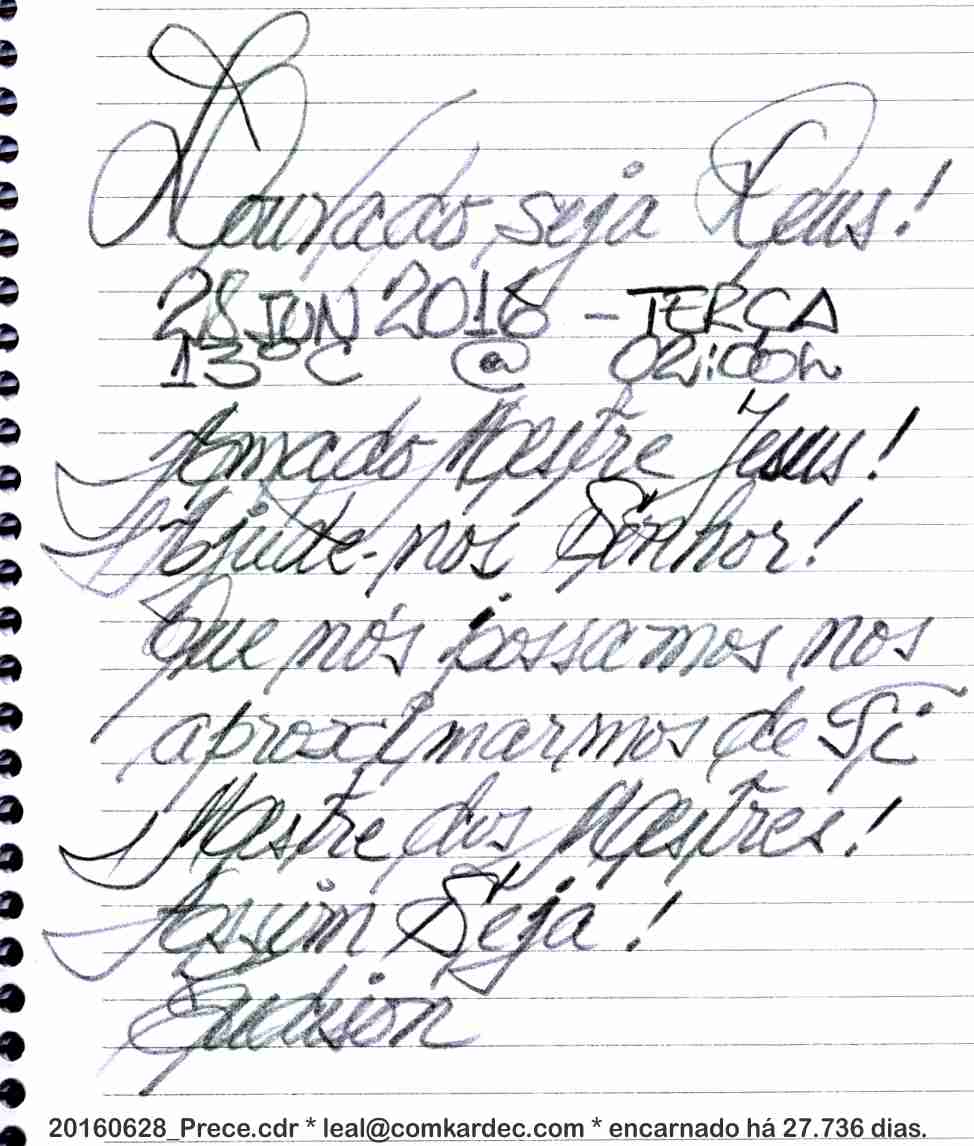 Louvado seja Deus!
28 JUN 2016 - TERÇA
13°C @ 02:00h
Amado Mestre Jesus!
Ajude-nos Senhor!
Que nós possamos nos
aproximarmos de Ti
Mestre dos Mestres!
Assim Seja!
20160628_Prece.cdr * leal@comkardec.com * encarnado há 27.736 dias.